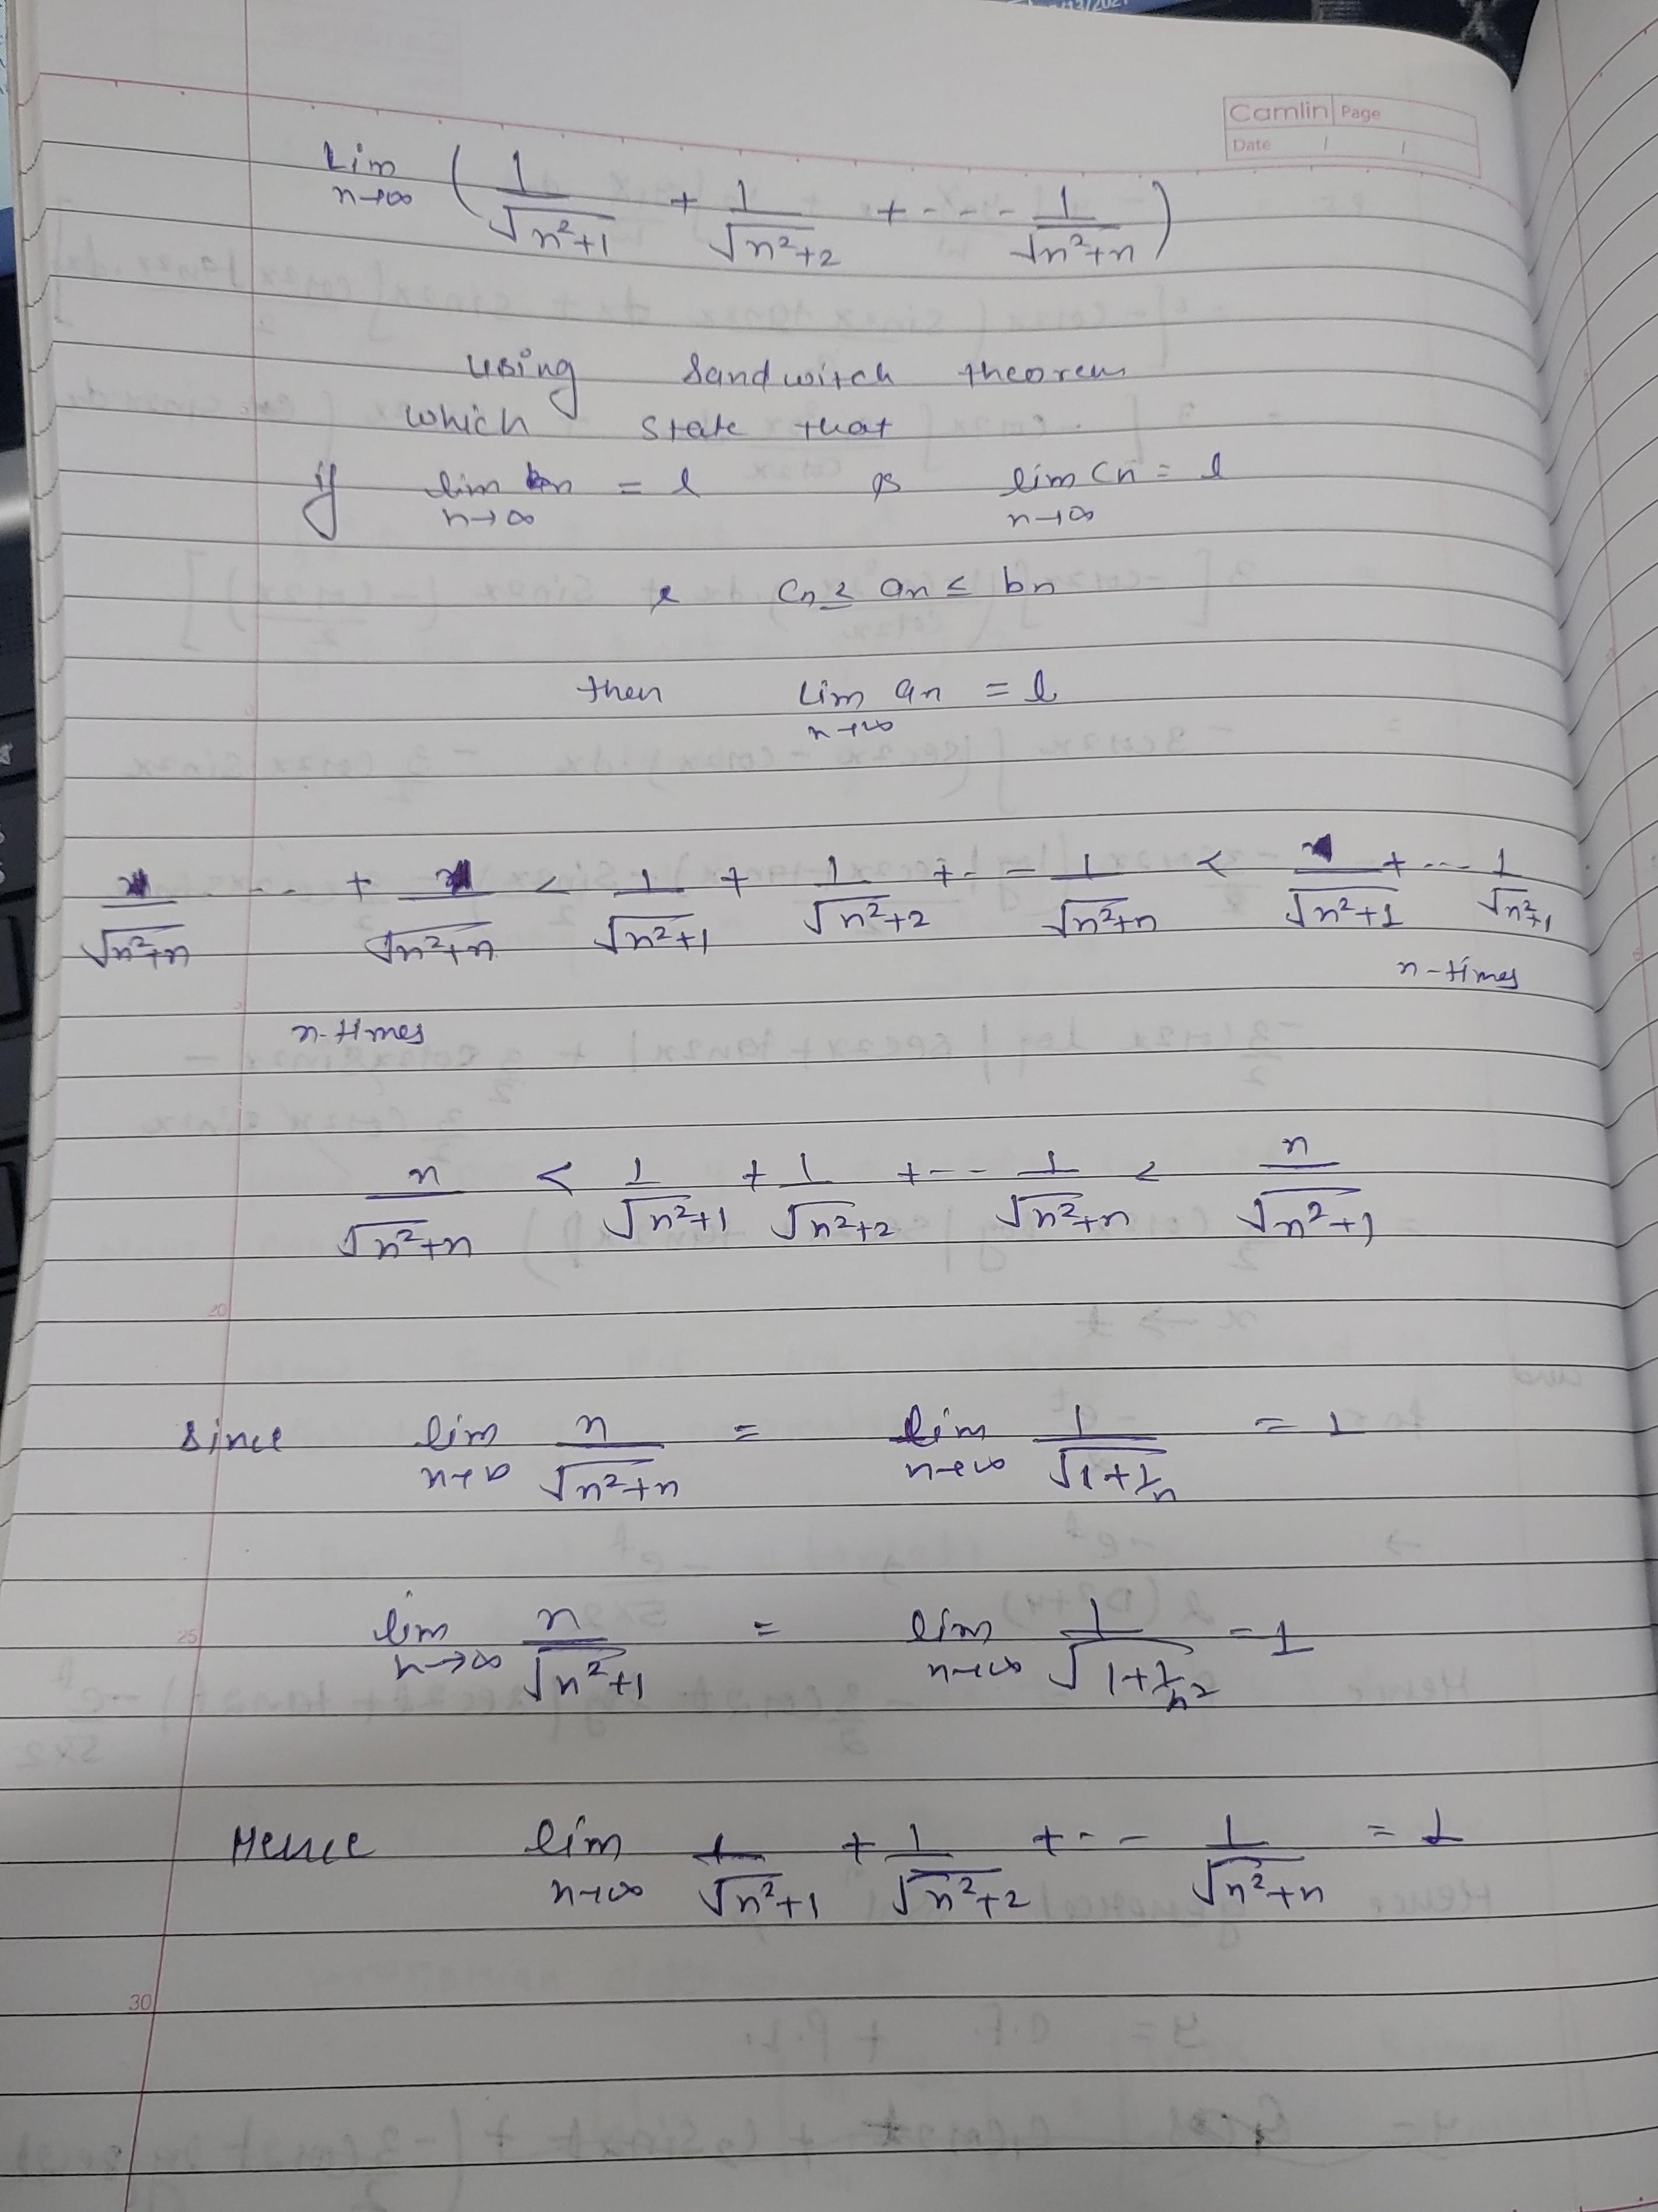 Camlin Page
Date / /
Lim n→∞ ( 1/√n²+1 + 1/√n²+2 + - - - 1/√n²+n )
using Sandwitch theorem
which state that
if lim n→∞ bn = l & lim n→∞ Cn = l
& Cn ≤ an ≤ bn
then Lim n→∞ an = l
1/√n²+n - - - + 1/√n²+n < 1/√n²+1 + 1/√n²+2 + - - 1/√n²+n < 1/√n²+1 + --- 1/√n²+1
n-times
n-times
n/√n²+n < 1/√n²+1 + 1/√n²+2 + -- 1/√n²+n < n/√n²+1
20
Since lim n→∞ n/√n²+n = lim n→∞ 1/√1+1/n = 1
25
lim n→∞ n/√n²+1 = lim n→∞ 1/√1+1/n² = 1
Hence lim n→∞ 1/√n²+1 + 1/√n²+2 + - - 1/√n²+n = 1
30